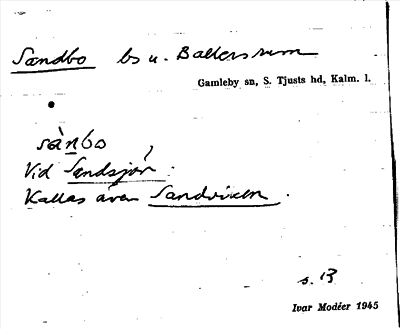 Sandbo bs u. Ballersrum
Gamleby sn, S. Tjusts hd, Kalm. l.
sànbo
Vid Sandsjön.
Kallas även Sandviken.
s. 13
Ivar Modéer 1945